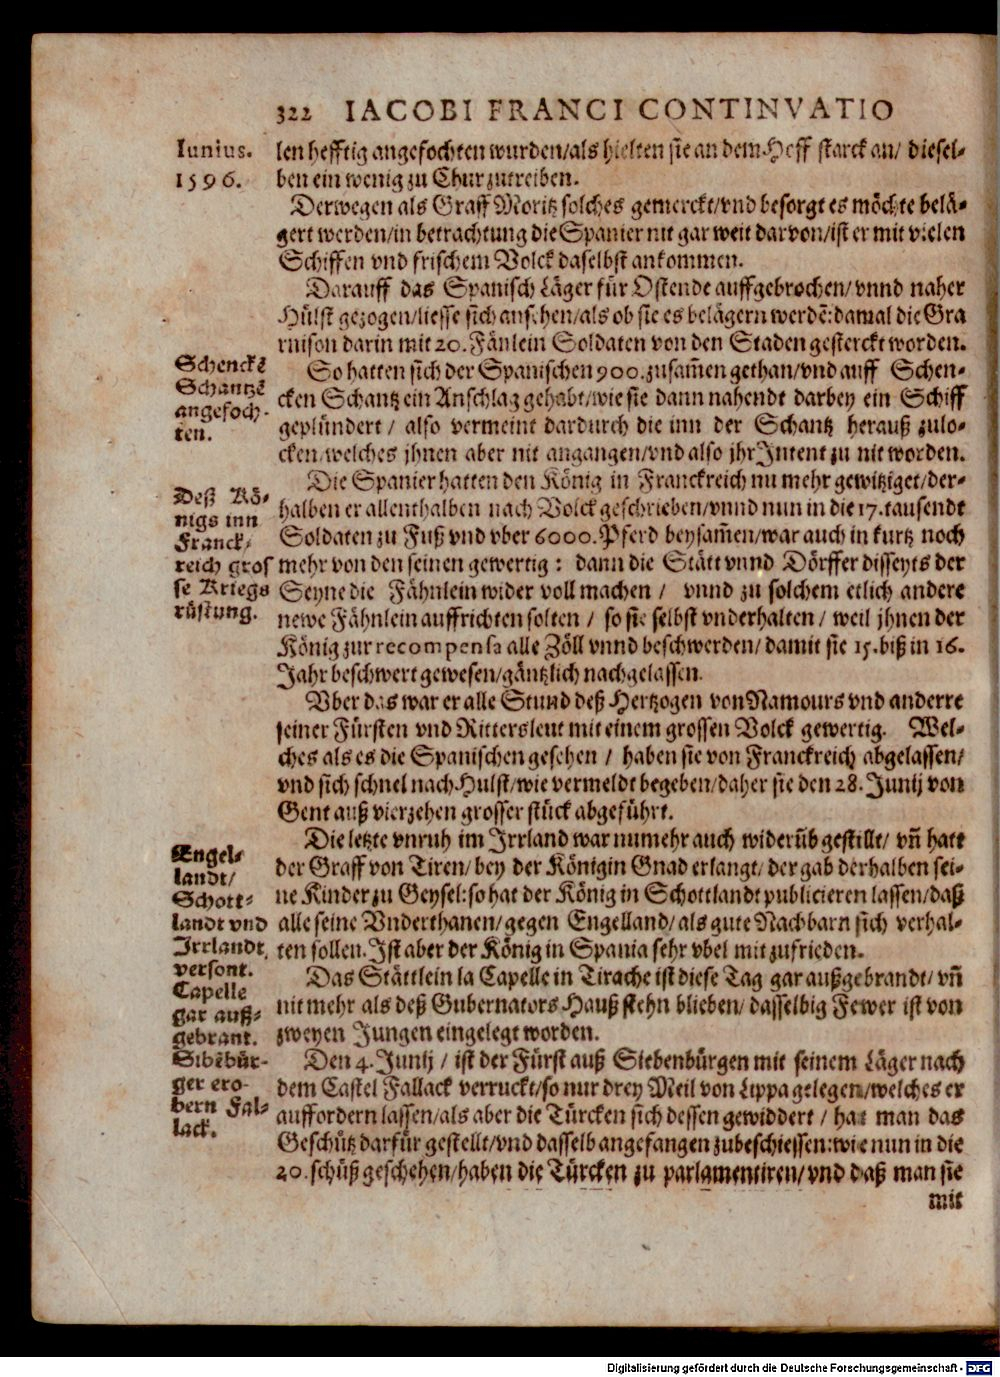 322 IACOBI FRANCI CONTINVATIO
Iunius.
1596.
len hefftig angefochten wurden/als hielten sie an dem Heff starck an/ diesel-
ben ein wenig zu Chur zutreiben.
Derwegen als Graff Moritz solches gemerckt/vnd besorgt es möchte belä-
gert werden/in betrachtung die Spanier nit gar weit darvon/ist er mit vielen
Schiffen vnd frischem Volck daselbst ankommen.
Darauff das Spanisch Läger für Ostende auffgebrochen/vnnd naher
Hülst gezogen/liesse sich ansehen/als ob sie es belägern werdē:damal die Gra
rnison darin mit 20. Fänlein Soldaten von den Staden gesterckt worden.
Schenckē
Schantzē
angefoch-
ten.
So hatten sich der Spanischen 900. zusam̄en gethan/vnd auff Schen-
cken Schantz ein Anschlag gehabt/wie sie dann nahendt darbey ein Schiff
geplündert / also vermeint dardurch die inn der Schantz herauß zulo-
cken/welches jhnen aber nit angangen/vnd also jhr Intent zu nit worden.
Deß Kö-
nigs inn
Franck-
reich gros
se Kriegs
rüstung.
Die Spanier hatten den König in Franckreich nu mehr gewitziget/der-
halben er allenthalben nach Volck geschrieben/vnnd nun in die 17. tausendt
Soldaten zu Fuß vnd vber 6000. Pferd beysam̄en/war auch in kurtz noch
mehr von den seinen gewertig: dann die Stätt vnnd Dörffer disseyts der
Seyne die Fähnlein wider voll machen / vnnd zu solchem etlich andere
newe Fähnlein auffrichten solten / so sie selbst vnderhalten / weil jhnen der
König zur recompensa alle Zöll vnnd beschwerden/damit sie 15. biß in 16.
Jahr beschwert gewesen/gäntzlich nachgelassen.
Vber das war er alle Stund deß Hertzogen von Namours vnd anderre
seiner Fürsten vnd Rittersleut mit einem grossen Volck gewertig. Wel-
ches als es die Spanischen gesehen / haben sie von Franckreich abgelassen/
vnd sich schnel nach Hulst/wie vermeldt begeben/daher sie den 28. Junij von
Gent auß vierzehen grosser stück abgeführt.
Engel-
landt/
Schott-
landt vnd
Irrlandt,
versont.
Die letzte vnruh im Irrland war numehr auch widerūb gestillt/ vn̄ hatt
der Graff von Tiren/bey der Königin Gnad erlangt/der gab derhalben sei-
ne Kinder zu Geysel:so hat der König in Schottlandt publicieren lassen/daß
alle seine Vnderthanen/gegen Engelland/als gute Nachbarn sich verhal-
ten sollen. Ist aber der König in Spania sehr vbel mit zufrieden.
Capelle
gar auß-
gebrant.
Das Stättlein la Capelle in Tirache ist diese Tag gar außgebrandt/ vn̄
nit mehr als deß Gubernators Hauß stehn blieben/dasselbig Fewer ist von
zweyen Jungen eingelegt worden.
Sibēbür-
ger ero-
bern Fal-
lack.
Den 4. Junij / ist der Fürst auß Siebenbürgen mit seinem Läger nach
dem Castel Fallack verruckt/so nur drey Meil von Lippa gelegen/welches er
auffordern lassen/als aber die Türcken sich dessen gewiddert / hat man das
Geschütz darfür gestellt/vnd dasselb angefangen zubeschiessen:wie nun in die
20. schüß geschehen/haben die Türcken zu parlamentiren/vnd daß man sie
mit
Digitalisierung gefördert durch die Deutsche Forschungsgemeinschaft - DFG